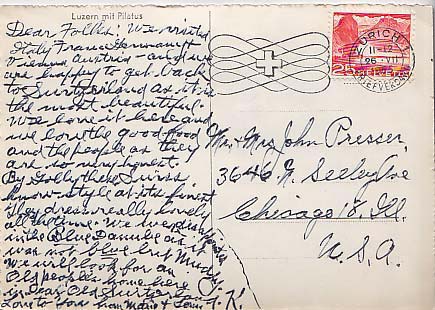 Luzern mit Pilatus
Dear Folks: We visited
Italy France
Vienna Austria - and we
are happy to get back
to Switzerland as it is
the most beautiful.
We love it here and
we love the good food
and the people as they
are so very honest.
By Golly these Swiss
know style at its finest
They dress really lovely
all the time. We were disappointed
in the Blue Danube as it
was not blue but Muddy.
We will look for an
Old peoples home here
in dear Old Switzerland
Love to You from
T.K.
ZÜRICH 1
26. VII
BRIEFVERSAND
25 HELVETIA
Mr. Mrs John Presser
3646 N. Seeley Ave
Chicago 18, Ill.
U.S.A.